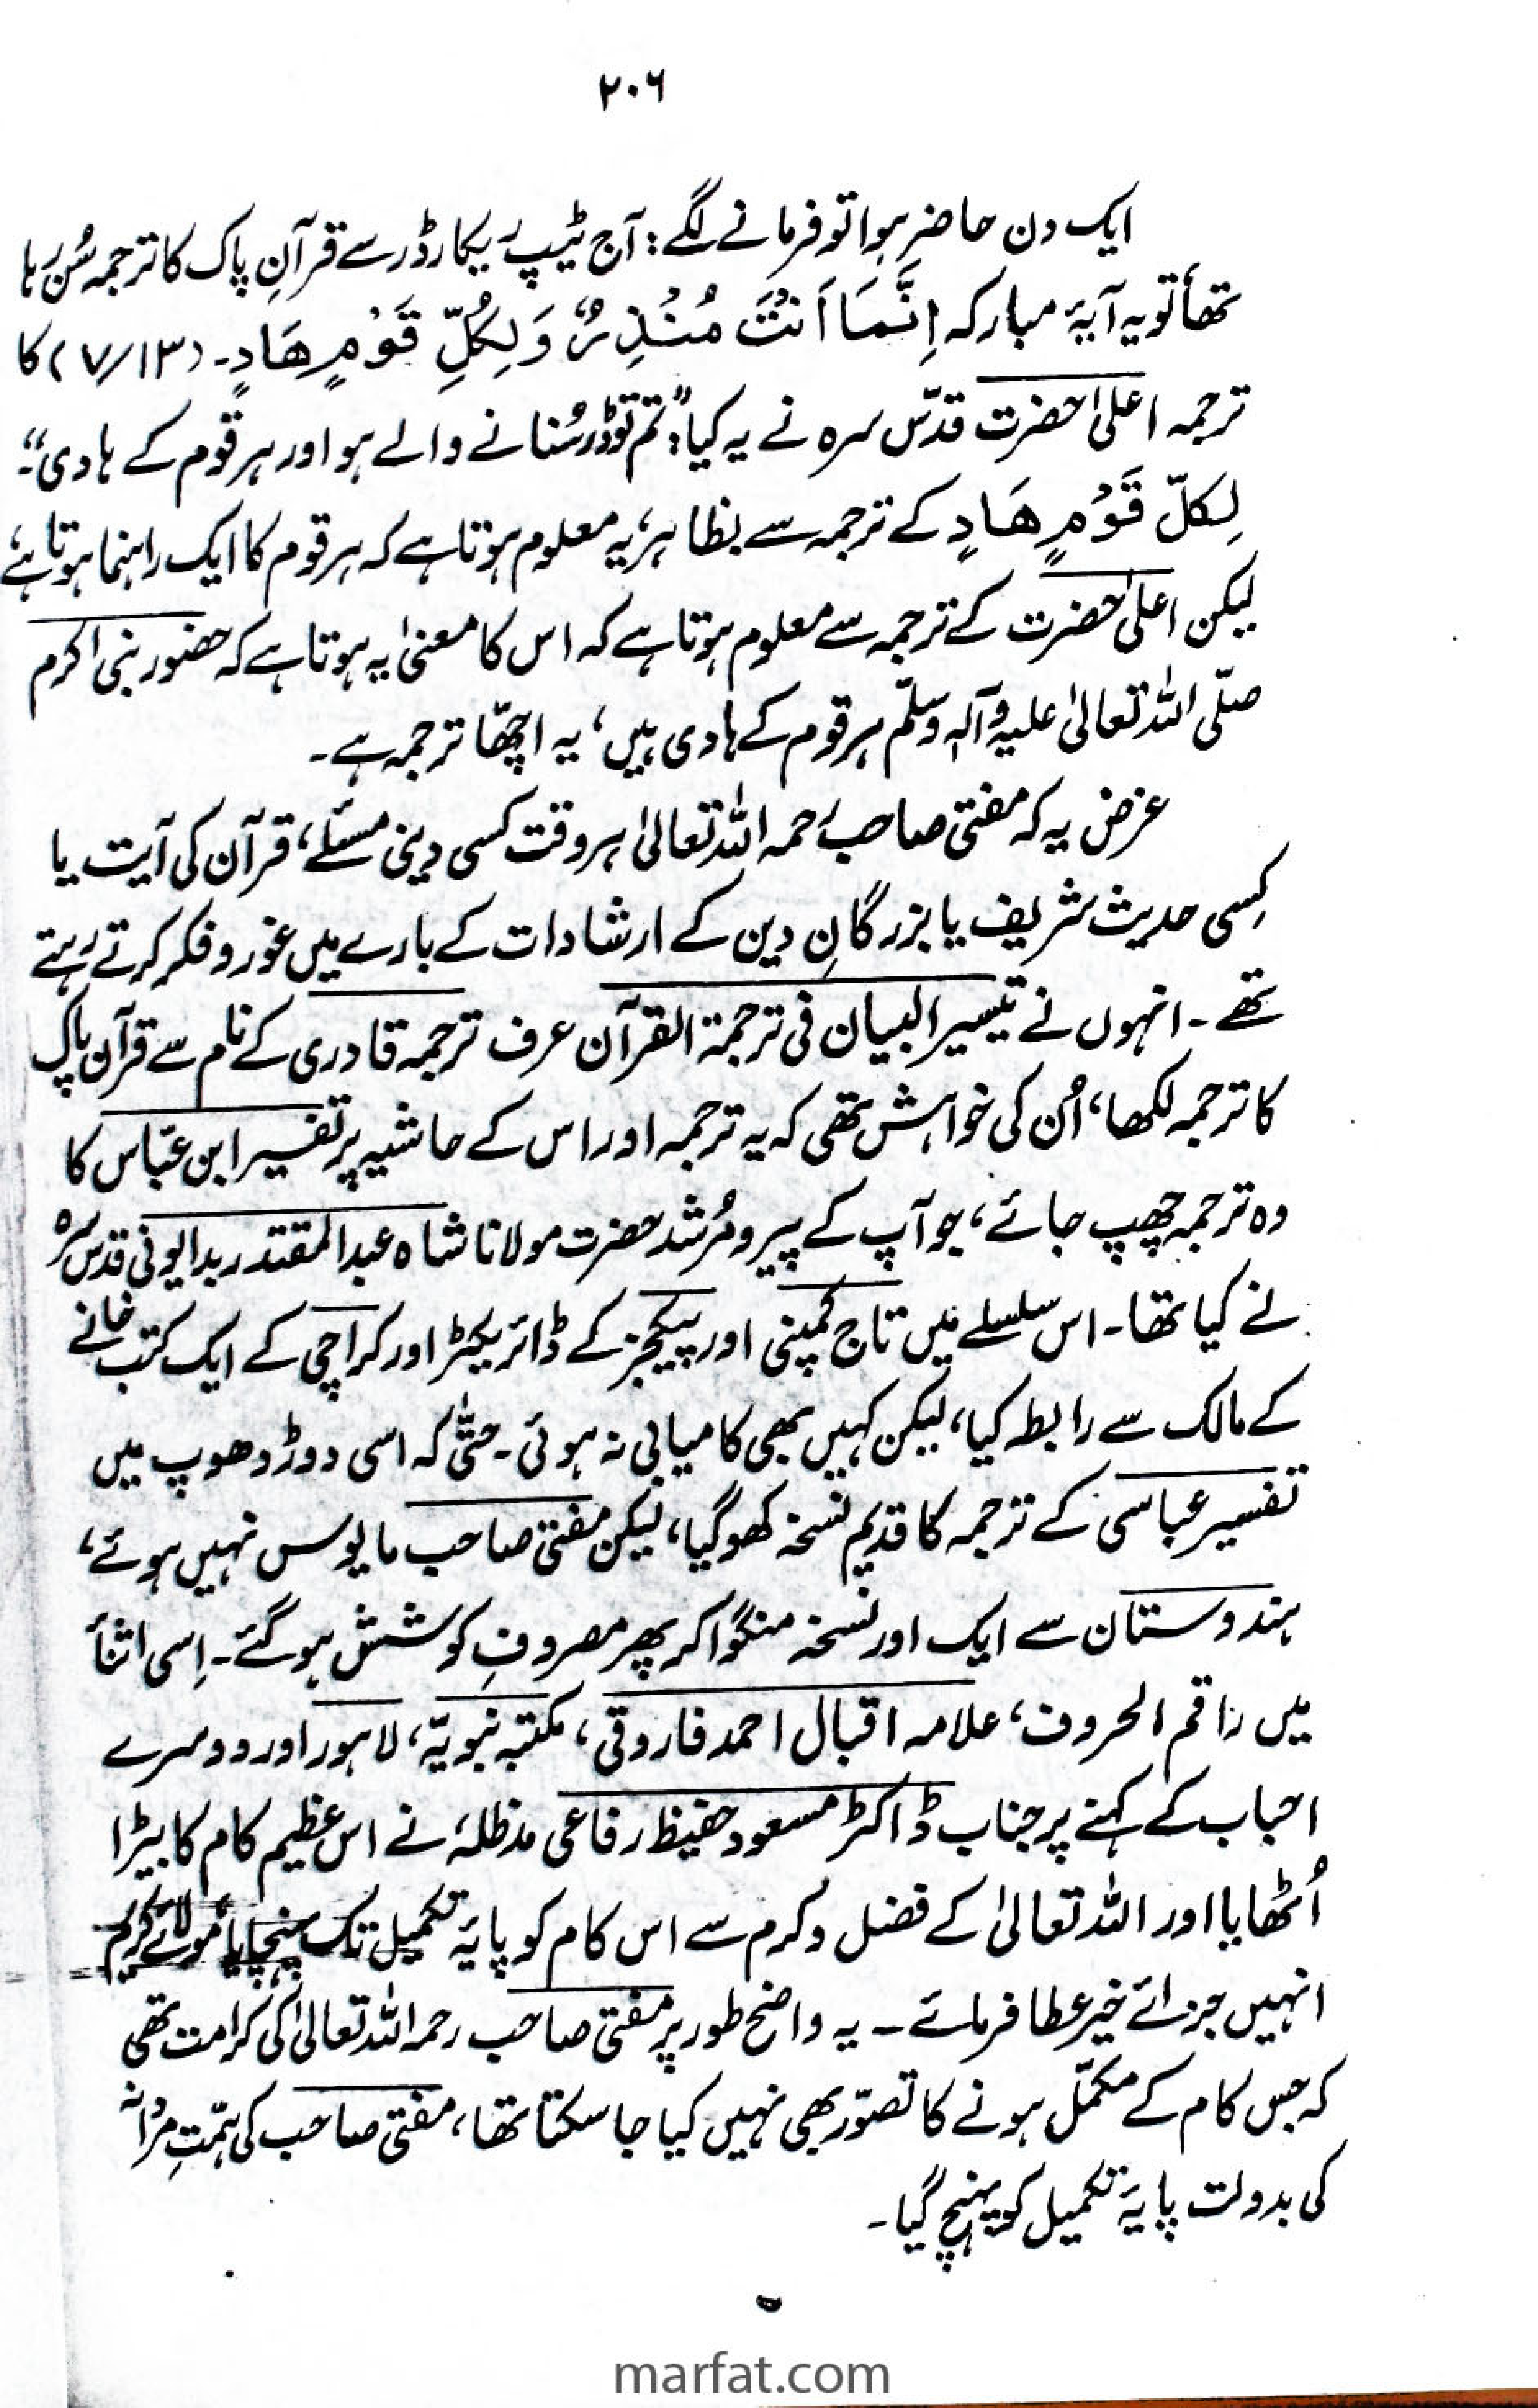 ۲۰۶
ایک دن حاضر ہوا تو فرمانے لگے: آج ٹیپ ریکارڈر سے قرآنِ پاک کا ترجمہ سُن رہا
تھا تو یہ آیۂ مبارکہ اِنَّمَا اَنْتَ مُنْذِرٌ وَلِكُلِّ قَوْمٍ هَادٍ۔ (۷/۱۳) کا
ترجمہ اعلیٰ حضرت قدّس سرہ نے یہ کیا: "تم تو ڈر سُنانے والے ہو اور ہر قوم کے ہادی"۔
لِكُلِّ قَوْمٍ هَادٍ کے ترجمہ سے بظاہر، یہ معلوم ہوتا ہے کہ ہر قوم کا ایک راہنما ہوتا ہے،
لیکن اعلیٰ حضرت کے ترجمہ سے معلوم ہوتا ہے کہ اس کا معنیٰ یہ ہوتا ہے کہ حضور نبی اکرم
صلّی اللہ تعالیٰ علیہ وآلہٖ وسلّم ہر قوم کے ہادی ہیں، یہ اچھّا ترجمہ ہے۔
غرض یہ کہ مفتی صاحب رحمہ اللہ تعالیٰ ہر وقت کسی دینی مسئلے، قرآن کی آیت یا
کِسی حدیث شریف یا بزرگانِ دین کے ارشادات کے بارے میں غور و فکر کرتے رہتے
تھے۔ انہوں نے تیسیر البیان فی ترجمۃ القرآن عرف ترجمہ قادری کے نام سے قرآن پاک
کا ترجمہ لکھا، اُن کی خواہش تھی کہ یہ ترجمہ اور اس کے حاشیہ پر تفسیر ابن عبّاس کا
وہ ترجمہ چھپ جائے، جو آپ کے پیر و مُرشد حضرت مولانا شاہ عبدالمقتدر بدایونی قدس سرہ
نے کیا تھا۔ اس سلسلے میں تاج کمپنی اور پیکیجز کے ڈائریکٹر اور کراچی کے ایک کتب خانے
کے مالک سے رابطہ کیا، لیکن کہیں بھی کامیابی نہ ہوئی۔ حتّٰی کہ اسی دوڑ دھوپ میں
تفسیر عباسی کے ترجمہ کا قدیم نسخہ کھو گیا، لیکن مفتی صاحب مایوس نہیں ہوئے،
ہندوستان سے ایک اور نسخہ منگوا کر پھر مصروفِ کوشش ہو گئے۔ اِسی اثنأ
میں راقم الحروف، علامہ اقبال احمد فاروقی، مکتبہ نبویّہ، لاہور اور دوسرے
احباب کے کہنے پر جناب ڈاکٹر مسعود حفیظ رفاعی مدظلہٗ نے اس عظیم کام کا بیڑا
اُٹھایا اور اللہ تعالیٰ کے فضل و کرم سے اس کام کو پایۂ تکمیل تک پہنچایا مولائے کریم
انہیں جزائے خیر عطا فرمائے۔ یہ واضح طور پر مفتی صاحب رحمہ اللہ تعالیٰ کی کرامت تھی
کہ جس کام کے مکمّل ہونے کا تصوّر بھی نہیں کیا جا سکتا تھا، مفتی صاحب کی ہمّتِ مردانہ
کی بدولت پایۂ تکمیل کو پہنچ گیا۔
marfat.com